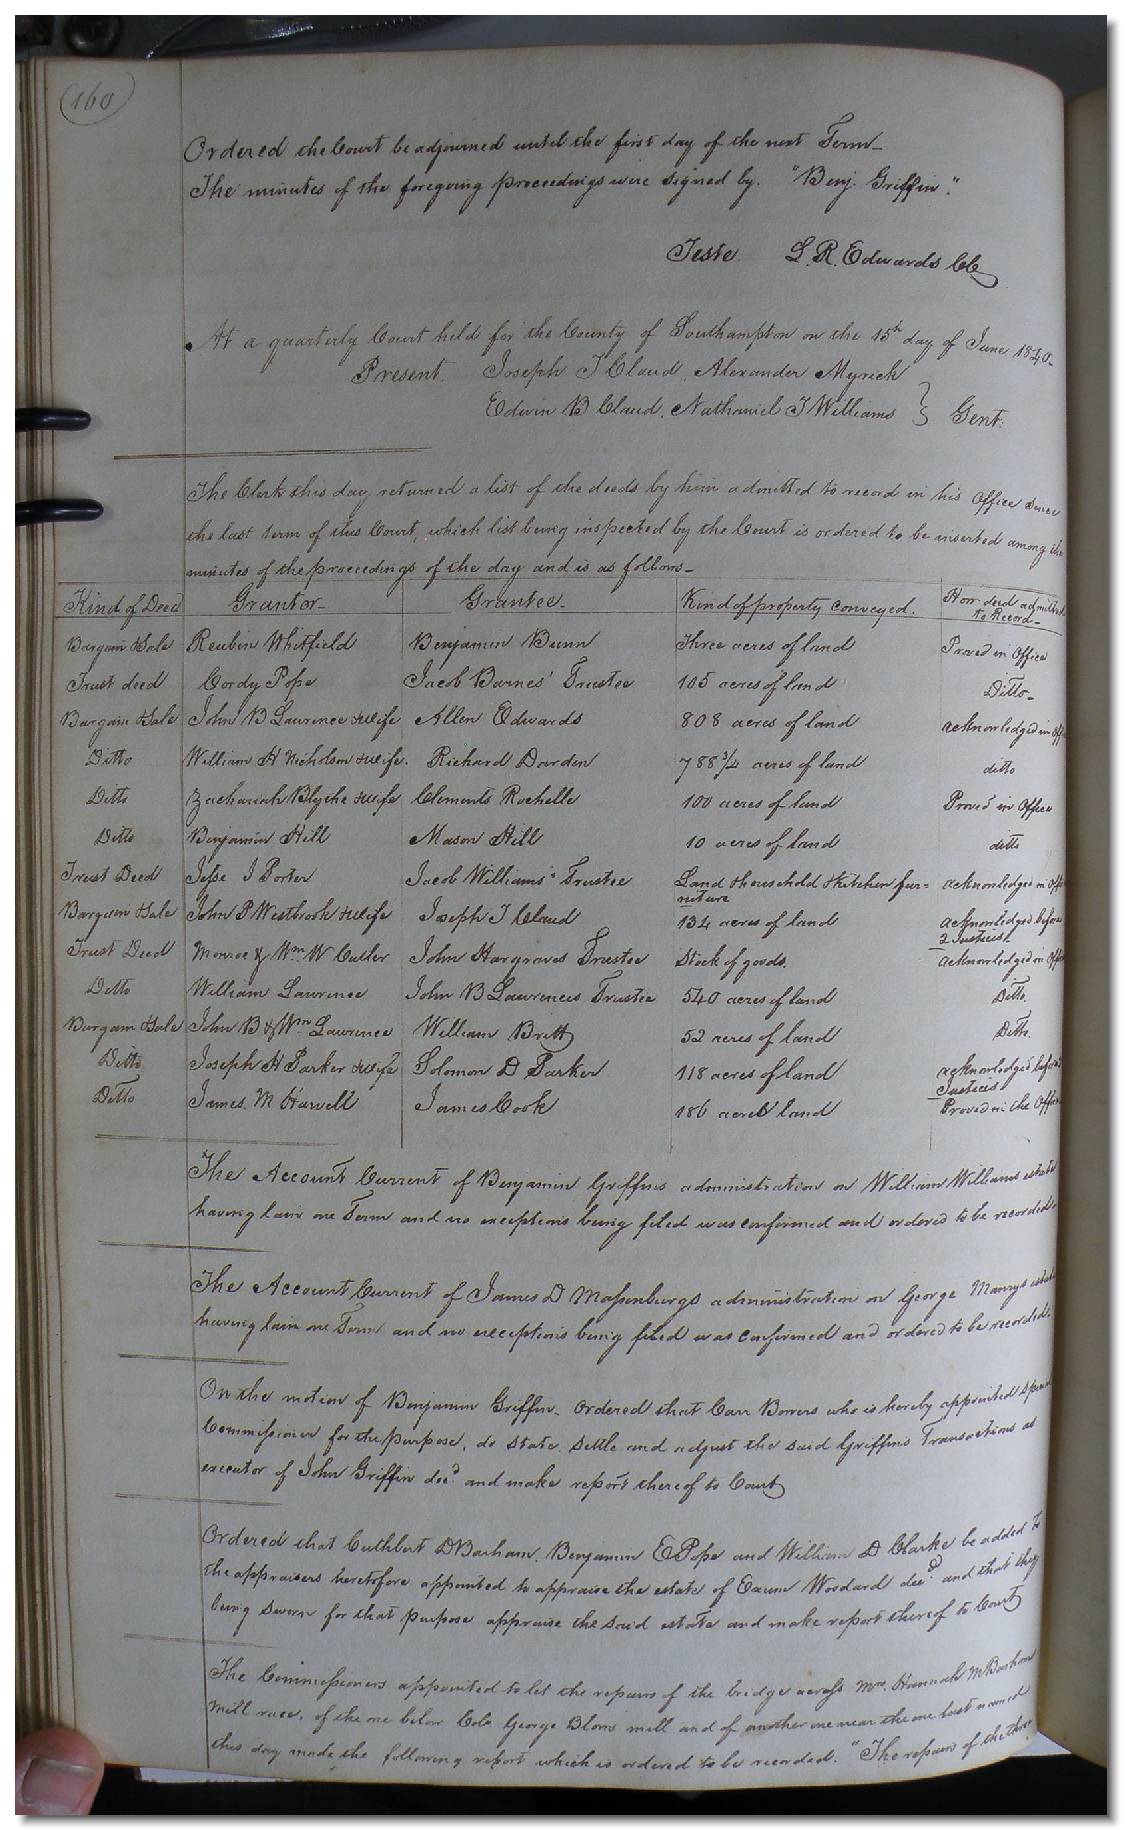 160
Ordered the Court be adjourned until the first day of the next Term_
The minutes of the foregoing proceedings were signed by. "Benj. Griffin".
Teste. L. R. Edwards CC
At a quarterly Court held for the County of Southampton on the 15th day of June 1840_
Present. Joseph T Claud, Alexander Myrick
Edwin B Claud, Nathaniel T Williams } Gent:
The Clerk this day returned a list of the deeds by him admitted to record in his Office since
the last term of this Court, which list being inspected by the Court is ordered to be inserted among the
minutes of the proceedings of the day and is as follows_
Kind of Deed Grantor_ Grantee_ Kind of property conveyed. How deed admitted
to Record_
Bargain & Sale Reubin Whitfield Benjamin Bunn Three acres of land Proved in Office
Trust deed Cordy Pope Jacob Barnes' Trustee 105 acres of land Ditto_
Bargain & Sale John B Lawrence & wife Allen Edwards 808 acres of land acknowledged in Off
Ditto William H Nicholson & wife. Richard Darden 788 3/4 acres of land ditto
Ditto Zachariah Blythe & wife Clements Rochelle 100 acres of land Proved in Office
Ditto Benjamin Hill Mason Hill 10 acres of land ditto
Trust Deed Jesse J Porter Jacob Williams' Trustee Land & household & kitchen fur= acknowledged in Off
niture
Bargain & Sale John P Westbrook & wife Joseph T Claud 134 acres of land acknowledged before
2 Justices
Trust Deed Monroe & Wm W Cutler John Hargraves Trustee Stock of goods. acknowledged in Off
Ditto William Lawrence John B Lawrences Trustee 540 acres of land Ditto
Bargain & Sale John B & Wm Lawrence William Britt 52 acres of land Ditto.
Ditto Joseph H Parker & wife Solomon D Parker 118 acres of land acknowledged before
Justices
Ditto James. M Harvell James Cook 186 acres land Proved in the Office
The Account Current of Benjamin Griffins administration on William Williams estate
having lain one Term and no exceptions being filed was confirmed and ordered to be recorded.
The Account Current of James D Massenburgs administration on George Manrys estate
having lain one Term and no exceptions being filed was confirmed and ordered to be recorded.
On the motion of Benjamin Griffin_ Ordered that Carr Bowers who is hereby appointed
Commissioner for the purpose, do state, settle and adjust the said Griffins Transactions as
executor of John Griffin decd. and make report thereof to Court
Ordered that Cuthbert D Barham, Benjamin E Pope and William D Clarke be added to
the appraisers heretofore appointed to appraise the estate of Exum Woodard decd. and that they
being sworn for that purpose appraise the said estate and make report thereof to Court
The Commissioners appointed to let the repairs of the bridge across Mrs. Hannah M Barham
mill race, of the one below Colo George Blows mill and of another one near the one last named
this day made the following report which is ordered to be recorded. "The repairs of the three